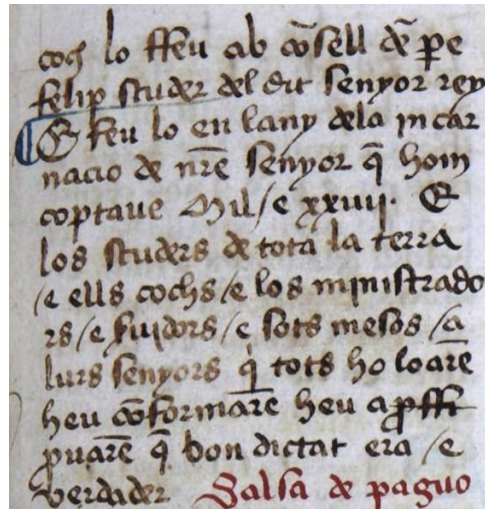 coch lo ffeu ab cōsell dē pe
felip scuder del dit senyor rey
¶ E feu lo en lany dela incar
nacio de nr̄e senyor q̄ hom
coptaue Mil / e xxiiij · E
los scuders de tota la terra
/ e ells cochs / e los ministrado
rs / e suidors / e sots mesos / a
lurs senyors q̇ tots ho loarē
heu cōformarē heu a ꝓffi
ꝓuarē q̄ bon dictat era / e
verdader Salsa de paguo